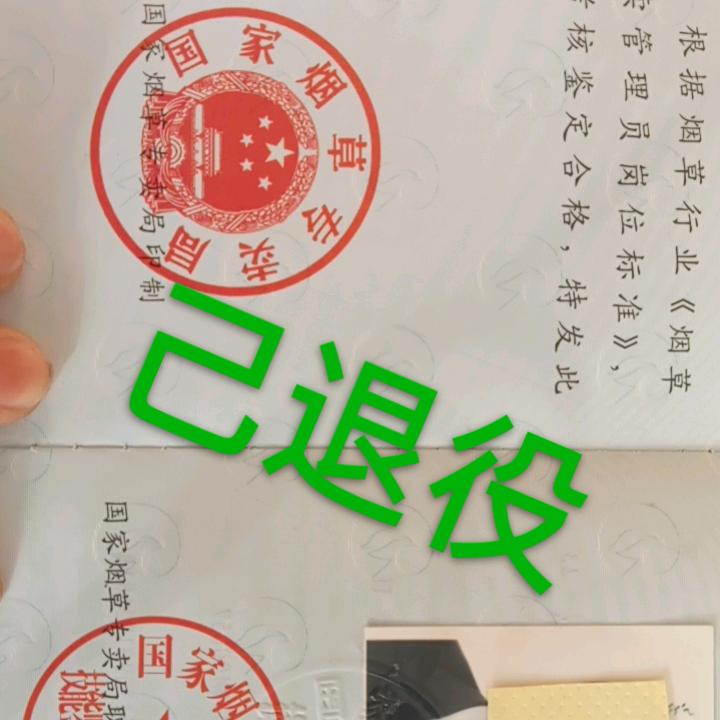 根据烟草行业《烟草
管理员岗位标准》,
核鉴定合格,特发此
国家烟草专卖局
国家烟草专卖局印制
己退役
国家烟草专卖局职
国家烟
技能